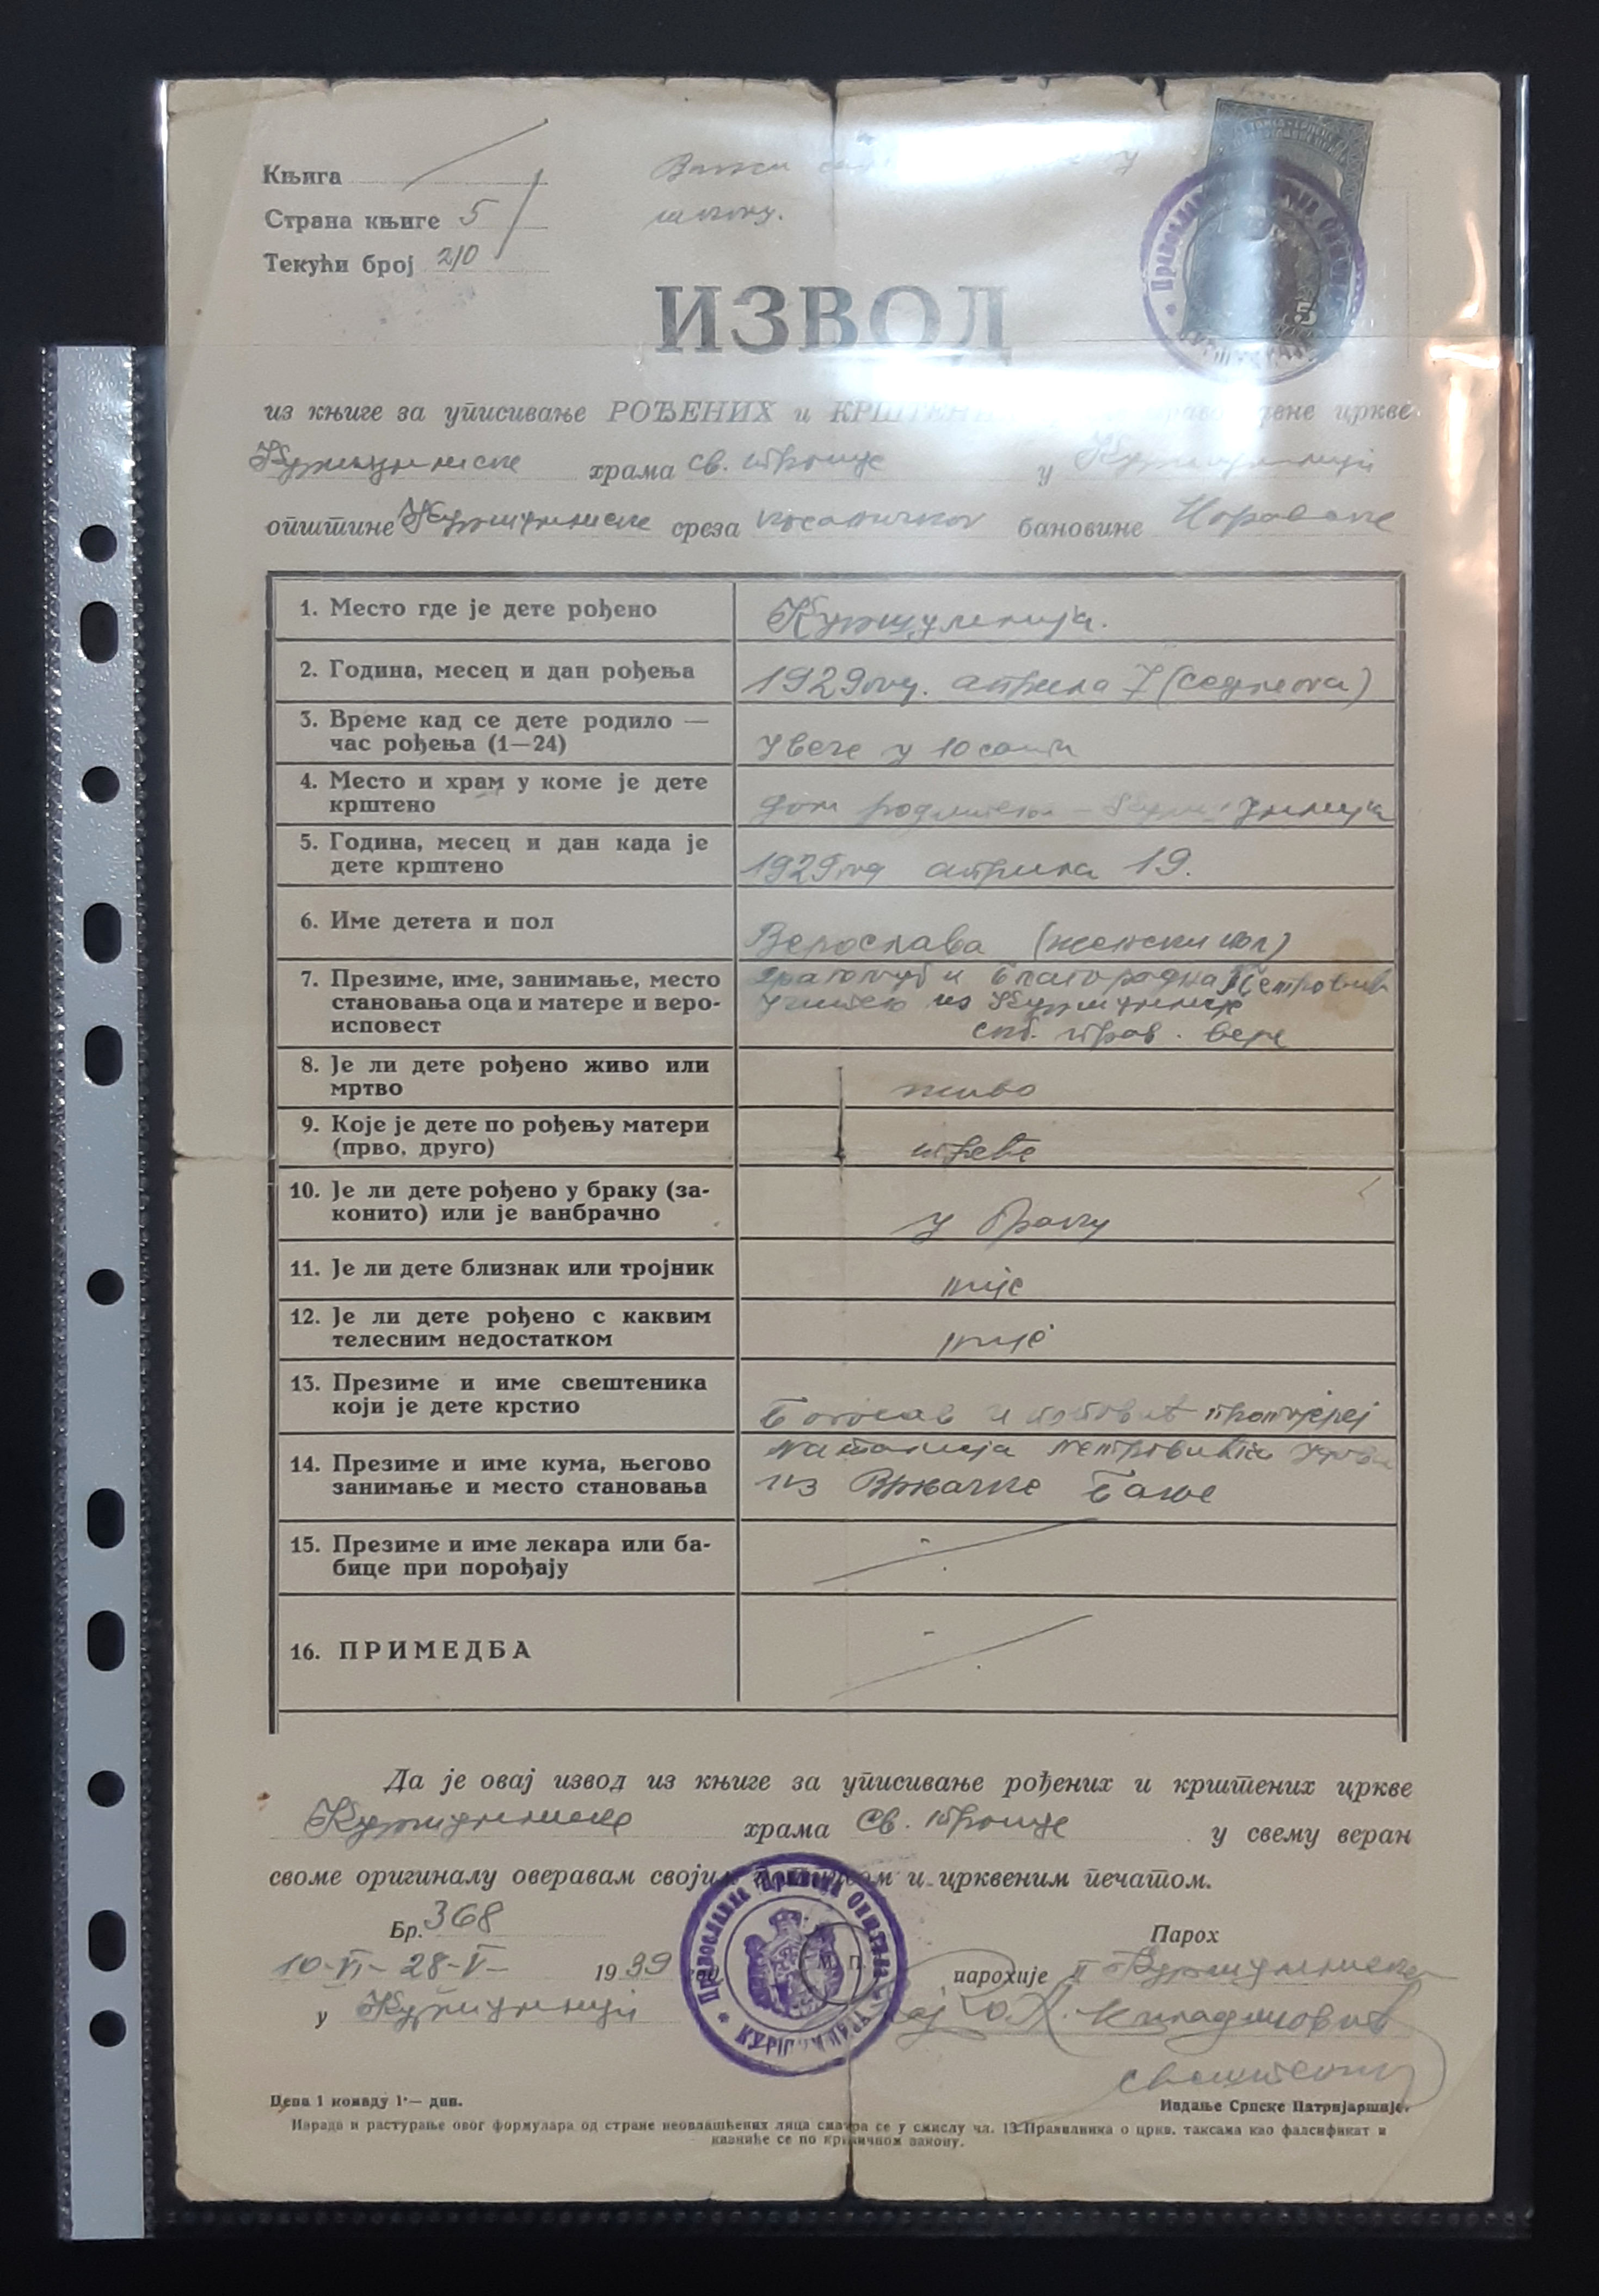 Књига
Страна књиге 5
Текући број 210
школу.
ИЗВОД
из књиге за уписивање РОЂЕНИХ и цркве
Куршумлиске храма св. Тројице у Куршумлији
општине Куршумлиске среза косаничког бановине Моравске
1. Место где је дете рођено Куршумлија.
2. Година, месец и дан рођења 1929 год. априла 7 (седмога)
3. Време кад се дете родило —
час рођења (1—24) Увече у 10 сати
4. Место и храм у коме је дете
крштено дом родитељ – Куршумлија
5. Година, месец и дан када је
дете крштено 1929 год априла 19.
6. Име детета и пол Верослава (женски пол)
7. Презиме, име, занимање, место
становања оца и матере и веро-
исповест Драгољуб и Благородна Петровић
Учитељ из Куршумлије
срп. прав. вере
8. Је ли дете рођено живо или
мртво живо
9. Које је дете по рођењу матери
(прво, друго) треће
10. Је ли дете рођено у браку (за-
конито) или је ванбрачно у браку
11. Је ли дете близнак или тројник није
12. Је ли дете рођено с каквим
телесним недостатком није
13. Презиме и име свештеника
који је дете крстио Богосав Поповић протојереј
14. Презиме и име кума, његово
занимање и место становања Наталија Петровићка
из Врњачке Бање
15. Презиме и име лекара или ба-
бице при порођају
16. ПРИМЕДБА
Да је овај извод из књиге за уписивање рођених и крштених цркве
Куршумлиске храма Св. Тројице у свему веран
своме оригиналу оверавам својим потписом и црквеним печатом.
Бр. 368 Парох
10-VI- 28-V- 1939 год. М. П. парохије II Куршумлиске
у Куршумлији
свештеник
Православна Црквена Општина
Цена 1 комаду 1·— дин. Издање Српске Патријаршије.
Израда и растурање овог формулара од стране неовлашћених лица сматра се у смислу чл. 13 Правилника о цркв. таксама као фалсификат и
казниће се по кривичном закону.